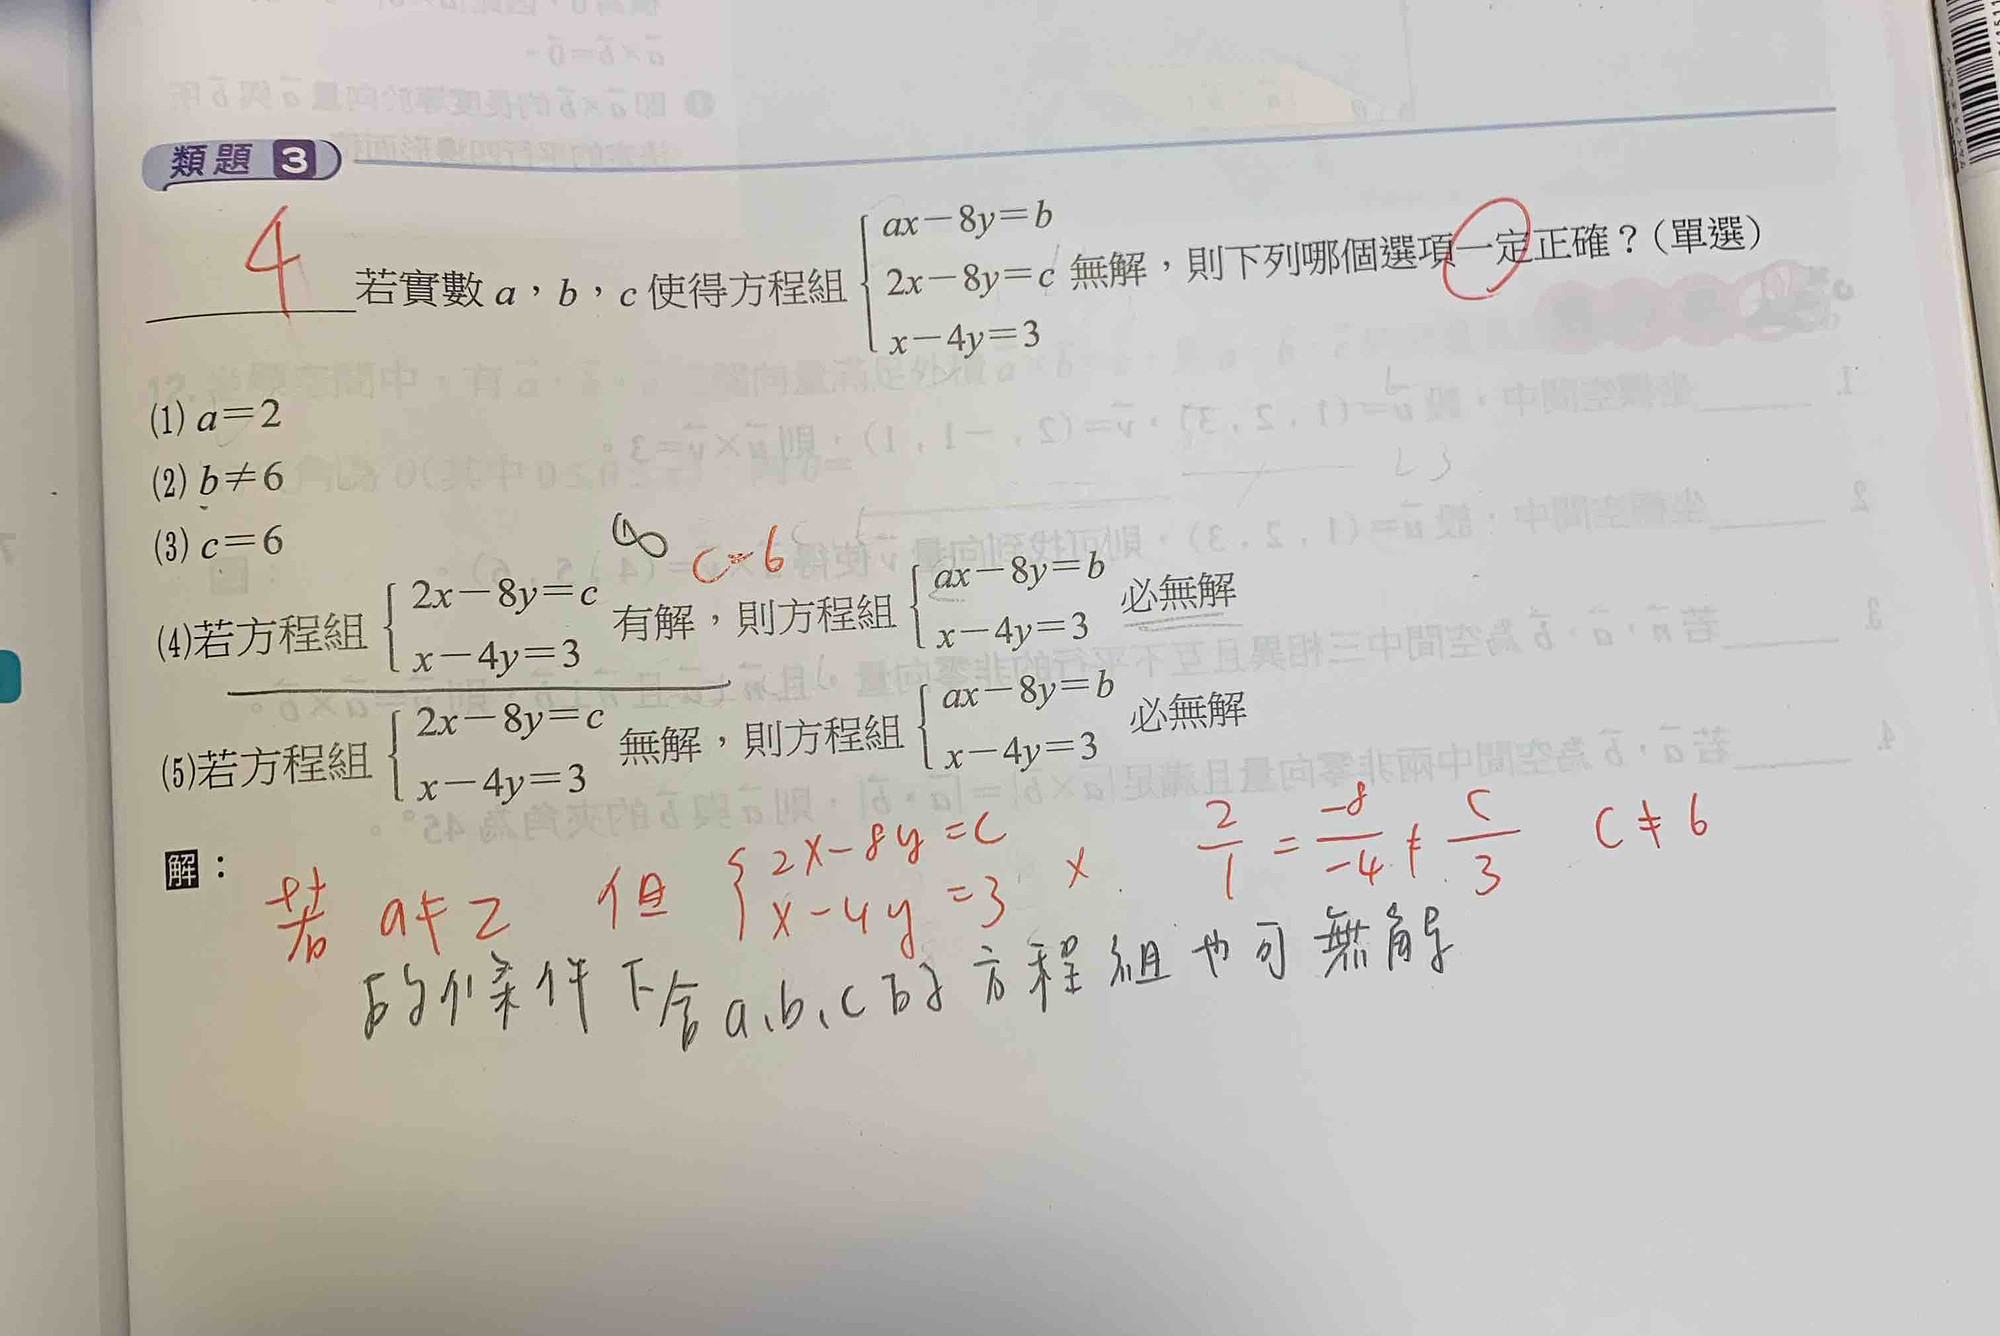 類題 3
4
若實數 a，b，c 使得方程組 { ax－8y＝b
2x－8y＝c
x－4y＝3 無解，則下列哪個選項一定正確？（單選）
(1) a＝2
(2) b≠6
(3) c＝6
∞ c=6
(4)若方程組 { 2x－8y＝c
x－4y＝3 有解，則方程組 { ax－8y＝b
x－4y＝3 必無解
(5)若方程組 { 2x－8y＝c
x－4y＝3 無解，則方程組 { ax－8y＝b
x－4y＝3 必無解
解：
若 a≠2 但 { 2x-8y=c
x-4y=3 × 2/1 = -8/-4 ≠ c/3 c≠6
的條件下含a、b、c的方程組也可無解